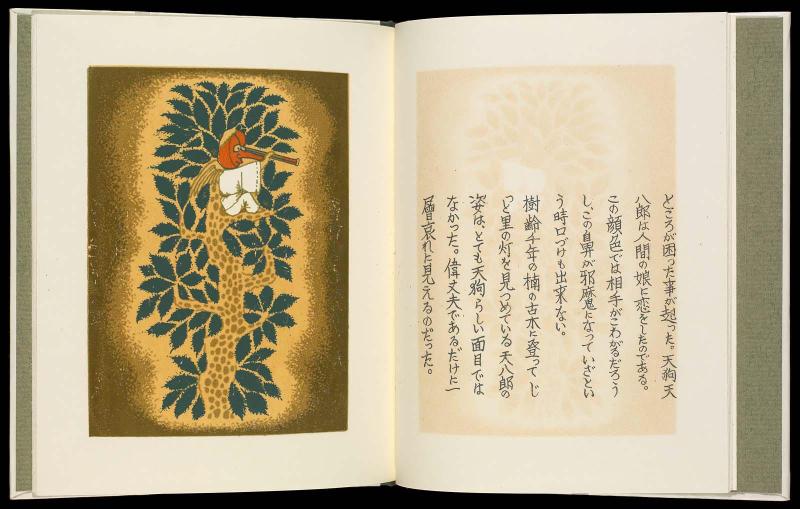 ところが困った事が起った。天狗天
八郎は人間の娘に恋をしたのである。
この顔色では相手がこわがるだろう
し、この鼻が邪魔になっていざとい
う時口づけも出来ない。
樹齢千年の楠の古木に登って じ
っと里の灯を見つめている天八郎の
姿は、とても天狗らしい面目では
なかった。偉丈夫であるだけに一
層哀れに見えるのだった。